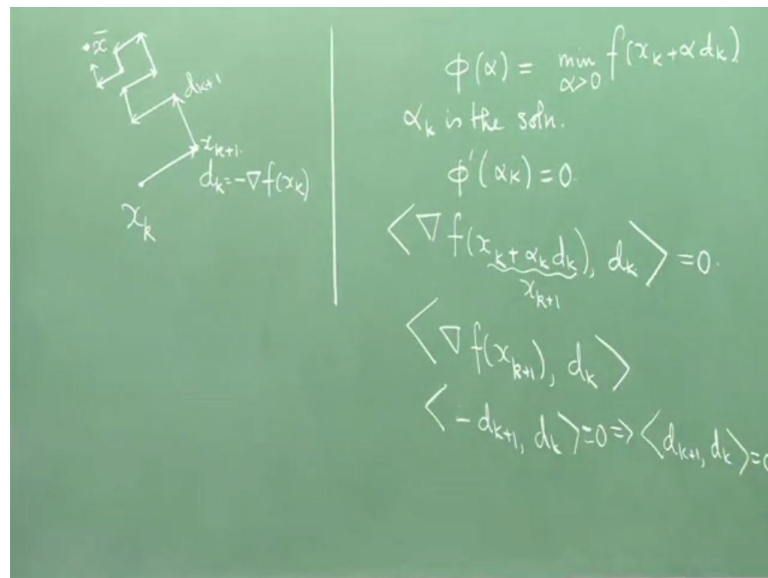 x̄
d_{k+1}
x_{k+1}.
d_k = -∇f(x_k)
x_k
φ(α) = min_{α>0} f(x_k + α d_k)
α_k is the soln.
φ'(α_k) = 0.
⟨∇f(x_k + α_k d_k), d_k⟩ = 0.
x_{k+1}
⟨∇f(x_{k+1}), d_k⟩
⟨-d_{k+1}, d_k⟩ = 0 ⇒ ⟨d_{k+1}, d_k⟩ = 0